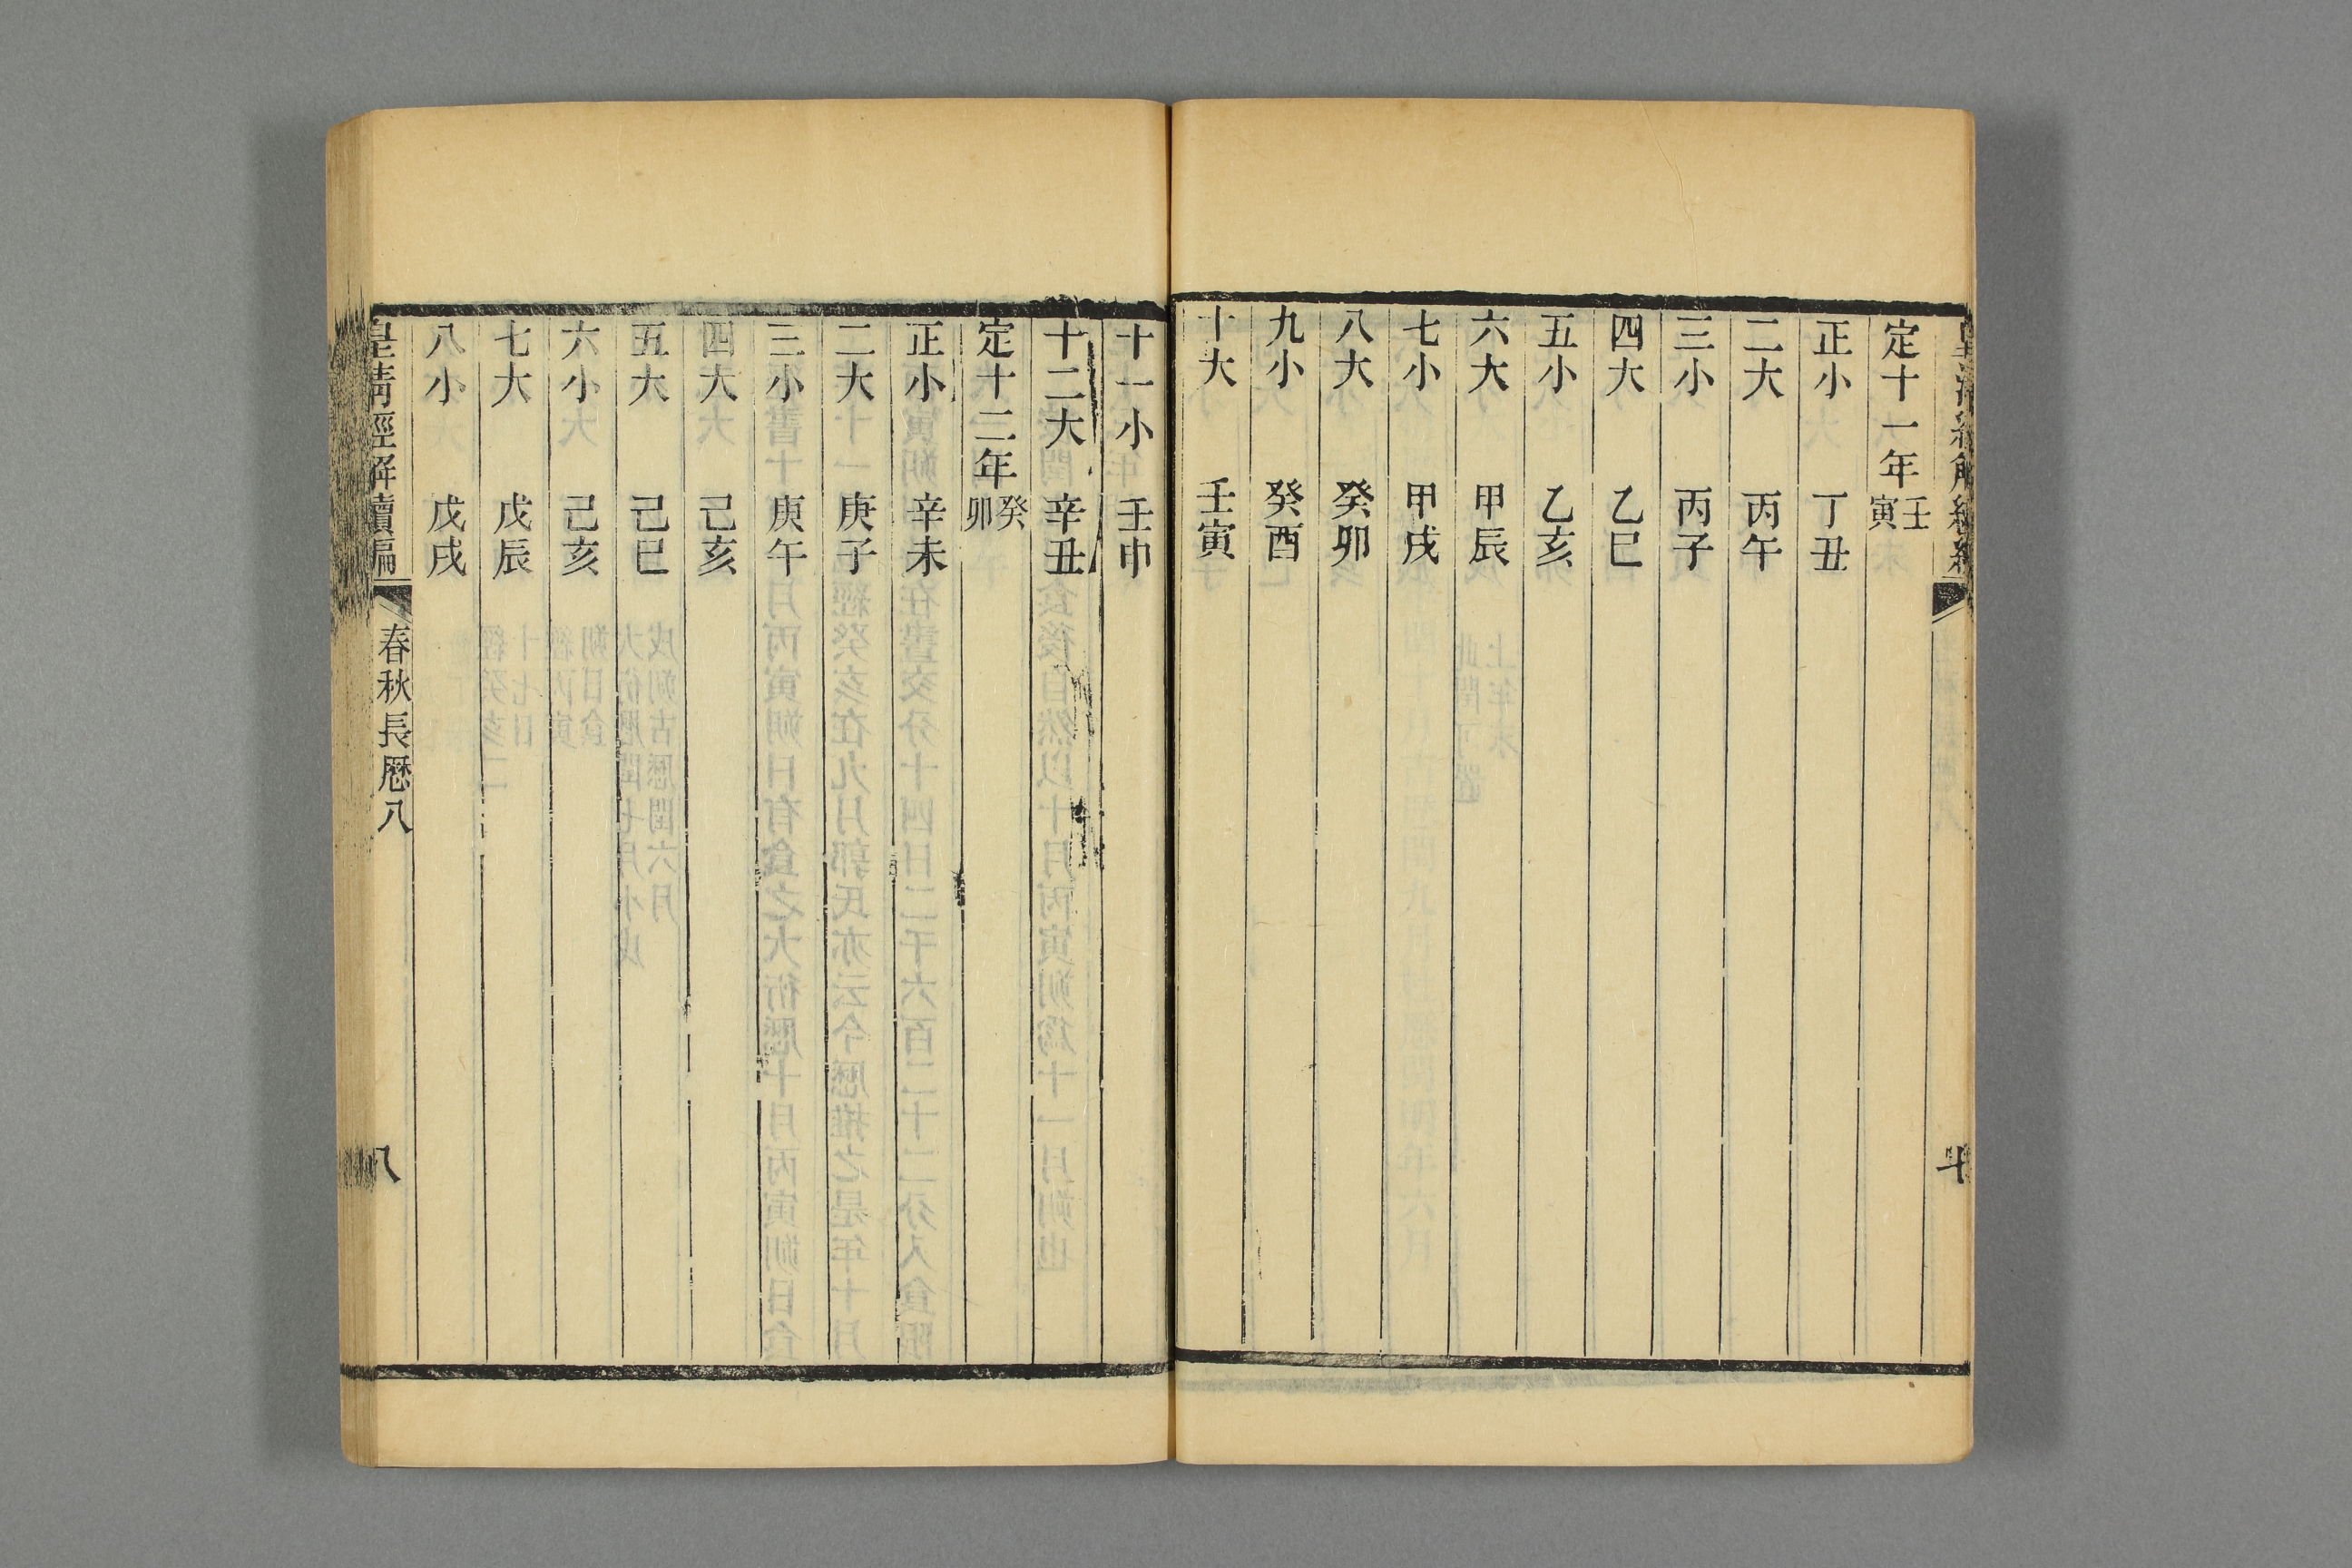 定十一年 壬寅
正小 丁丑
二大 丙午
三小 丙子
四大 乙巳
五小 乙亥
六大 甲辰
七小 甲戌
八大 癸卯
九小 癸酉
十大 壬寅
十一小 壬申
十二大 辛丑
定十二年 癸卯
正小 辛未
二大 庚子
三小 庚午
四大 己亥
五大 己巳
六小 己亥
七大 戊辰
八小 戊戌
皇清經解續編 春秋長厯八 八